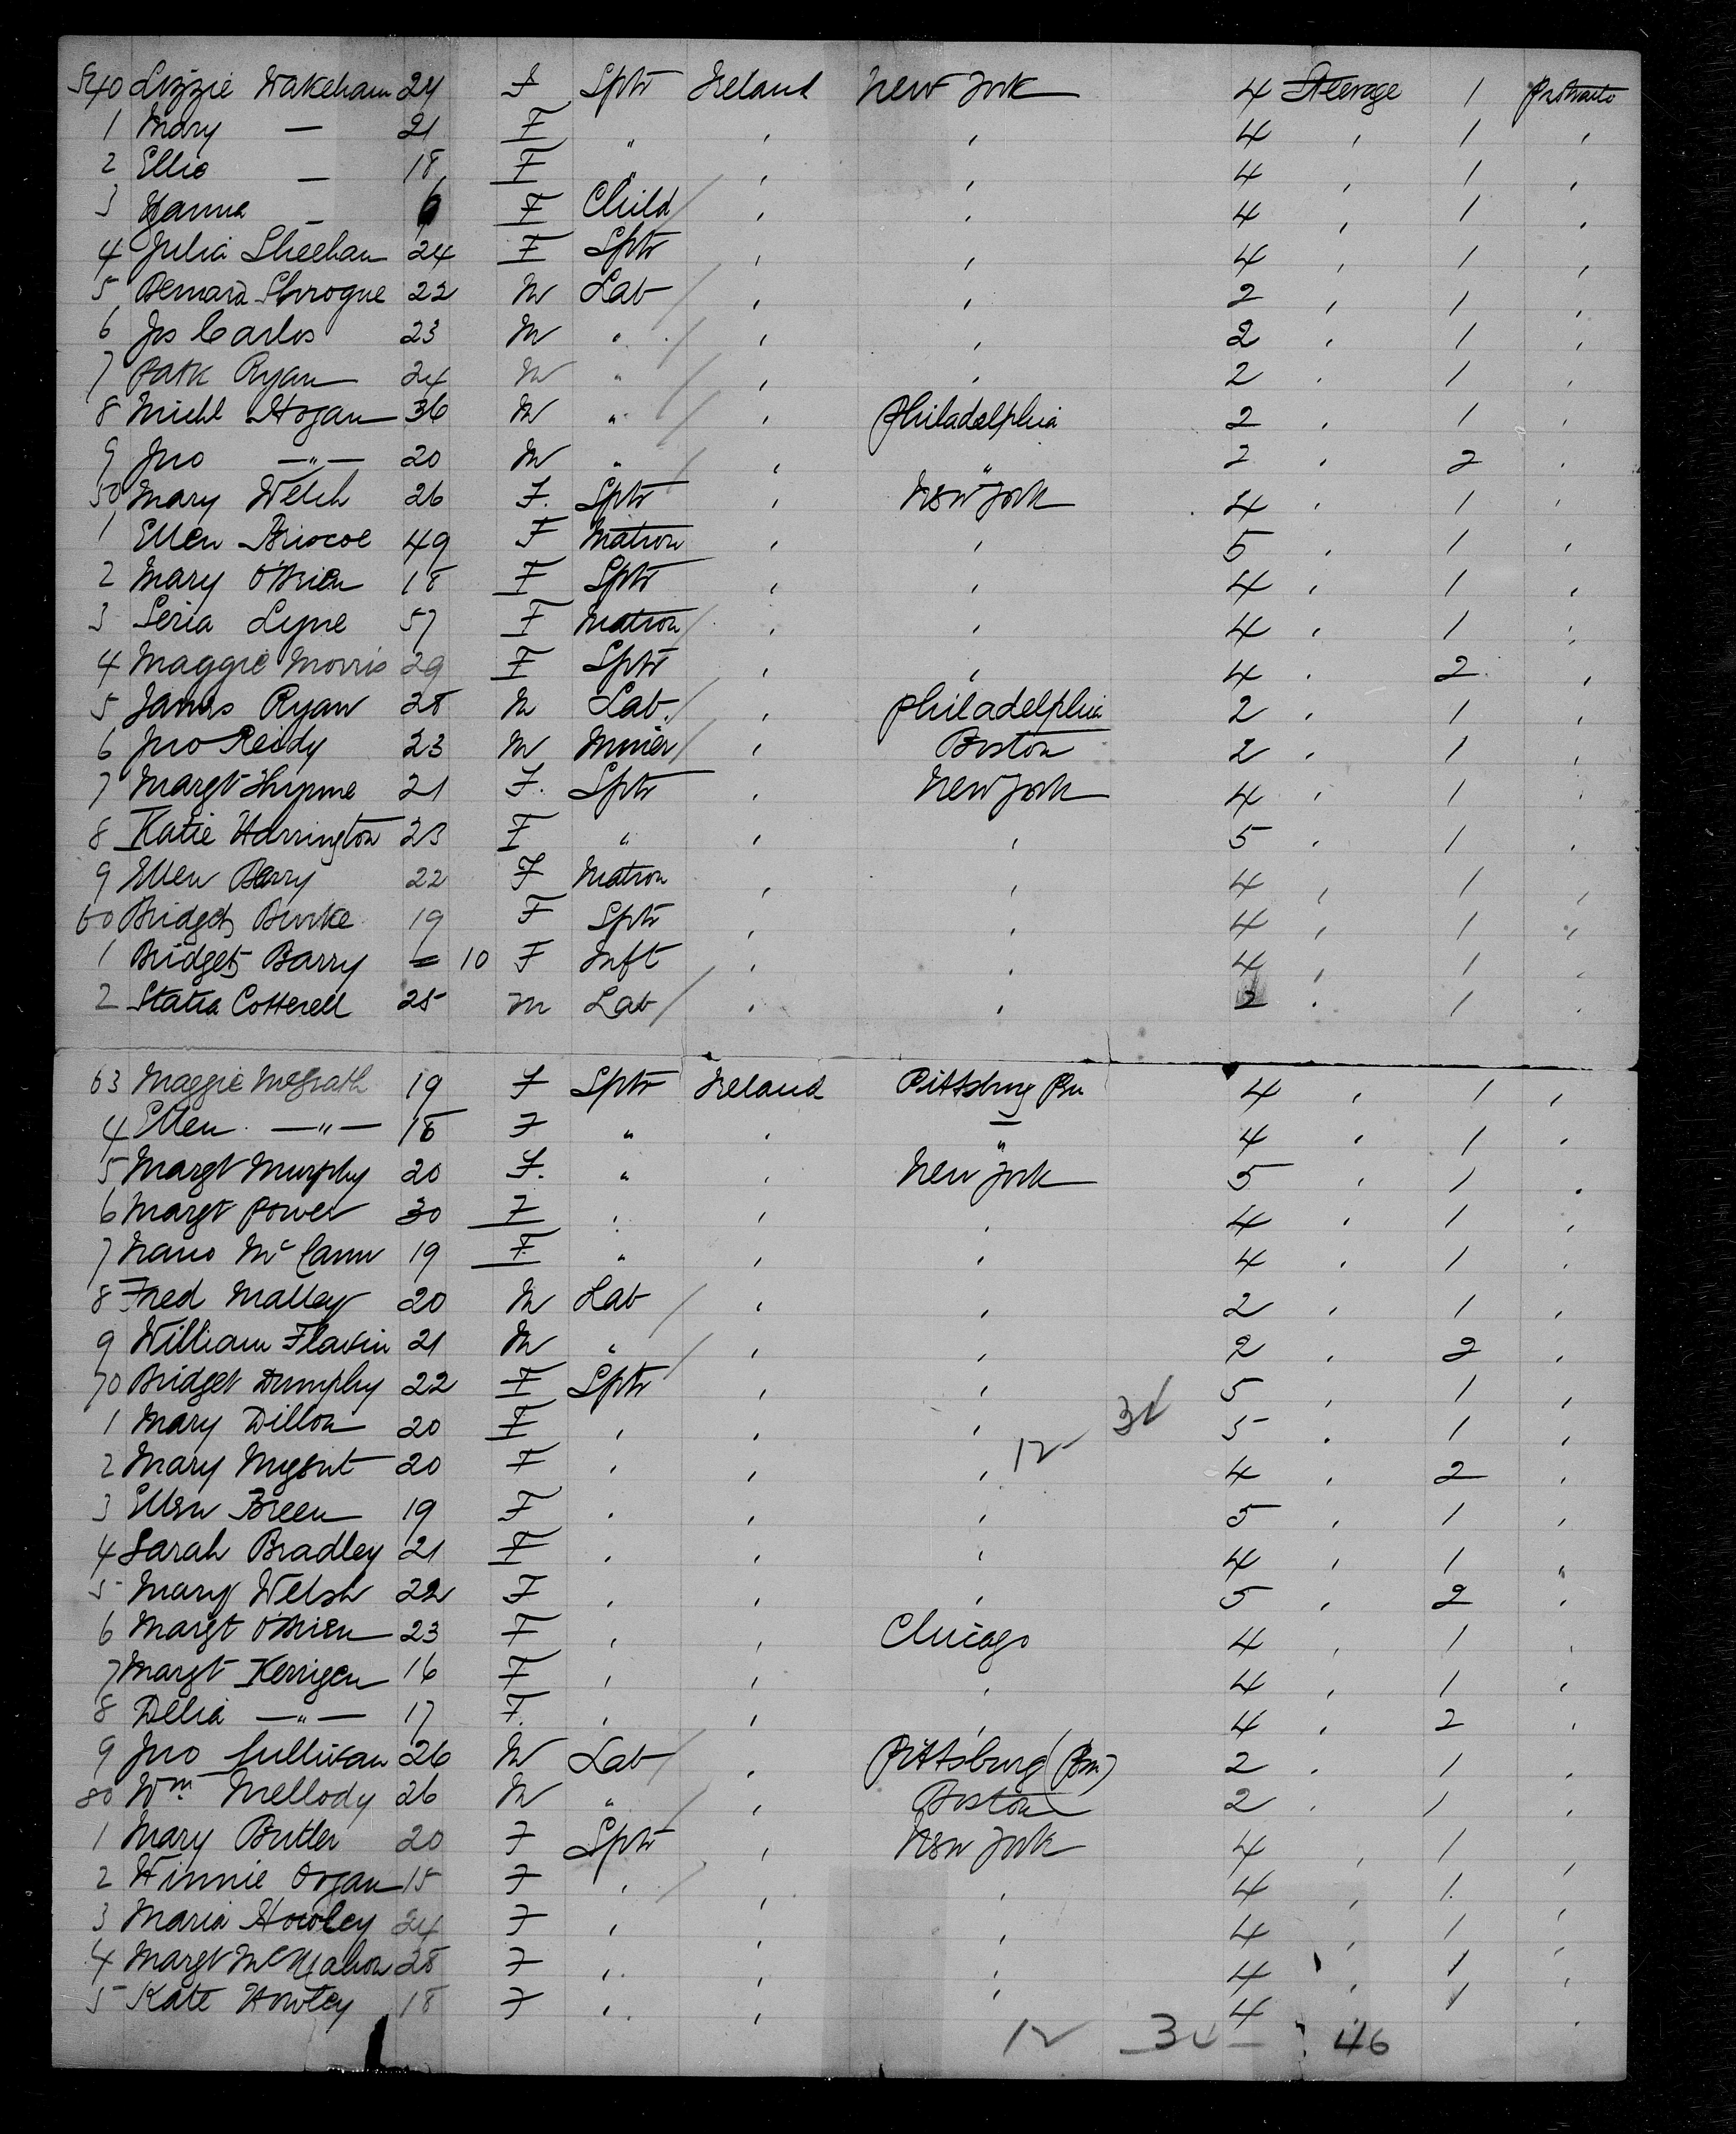 540 Lizzie Wakeham 24 F Sptr Ireland New York 4 Steerage 1
1 Mary — 21 F " ' ' 4 ' 1 '
2 Ellie — 18 F " ' ' 4 ' 1 '
3 Hanna — 6 F Child / ' ' 4 ' 1 '
4 Julia Sheehan 24 F Sptr ' ' 4 ' 1 '
5 Bernard Shrogue 22 M Lab / ' ' 2 ' 1 '
6 Jos Carlos 23 M " / ' ' 2 ' 1 '
7 Patk Ryan 24 M " / ' ' 2 ' 1 '
8 Michl Hogan 36 M " / ' Philadelphia 2 ' 1 '
9 Jno —"— 20 M " / ' " 2 ' 2 '
50 Mary Welch 26 F. Sptr ' New York 4 ' 1 '
1 Ellen Briscoe 49 F Matron ' ' 5 ' 1 '
2 Mary O'Brien 18 F Sptr ' ' 4 ' 1 '
3 Seria Lyne 57 F Matron / ' ' 4 ' 1 '
4 Maggie Morris 29 F Sptr ' ' 4 ' 2 '
5 James Ryan 28 M Lab. / ' Philadelphia 2 ' 1 '
6 Jno Reidy 23 M Miner / ' Boston 2 ' 1 '
7 Margt Thynne 21 F. Sptr ' New York 4 ' 1 '
8 Katie Harrington 23 F " ' ' 5 ' 1 '
9 Ellen Barry 22 F Matron ' ' 4 ' 1 '
60 Bridget Burke 19 F Sptr ' ' 4 ' 1 '
1 Bridget Barry 10 F Inft ' ' 4 ' 1 '
2 Statia Cotterell 25 M Lab / ' ' 2 ' 1 '
63 Maggie McGrath 19 F Sptr Ireland Pittsburg 4 ' 1 '
4 Ellen —"— 18 F " ' " 4 ' 1 '
5 Margt Murphy 20 F. " ' New York 5 ' 1 '
6 Margt Power 30 F ' ' ' 4 ' 1 '
7 Nano McCann 19 F " ' ' 4 ' 1 '
8 Fred Malley 20 M Lab / ' ' 2 ' 1 '
9 William Flavin 21 M " / ' ' 2 ' 2 '
70 Bridget Dumphy 22 F Sptr ' ' 5 ' 1 '
1 Mary Dillon 20 F ' ' ' 5 ' 1 '
2 Mary Nugent 20 F ' ' ' 12 4 ' 2 '
3 Ellen Breen 19 F ' ' ' 5 ' 1 '
4 Sarah Bradley 21 F ' ' ' 4 ' 1 "
5 Mary Welsh 22 F ' ' ' 5 ' 2 '
6 Margt O'Brien 23 F ' ' Chicago 4 ' 1 '
7 Margt Kerrigan 16 F ' ' ' 4 ' 1 '
8 Delia —"— 17 F. ' ' ' 4 ' 2 '
9 Jno Sullivan 26 M Lab / ' Pittsburg 2 ' 1 '
80 Wm Mellody 26 M " / ' Boston 2 ' 1 '
1 Mary Butler 20 F Sptr ' New York 4 ' 1 '
2 Winnie Organ 15 F ' / ' ' 4 ' 1 '
3 Maria Howley 24 F ' ' ' 4 ' 1 '
4 Margt McMahon 28 F ' ' ' 4 ' 1 '
5 Kate Howley 18 F ' ' ' 4 ' 1 '
12 34 46